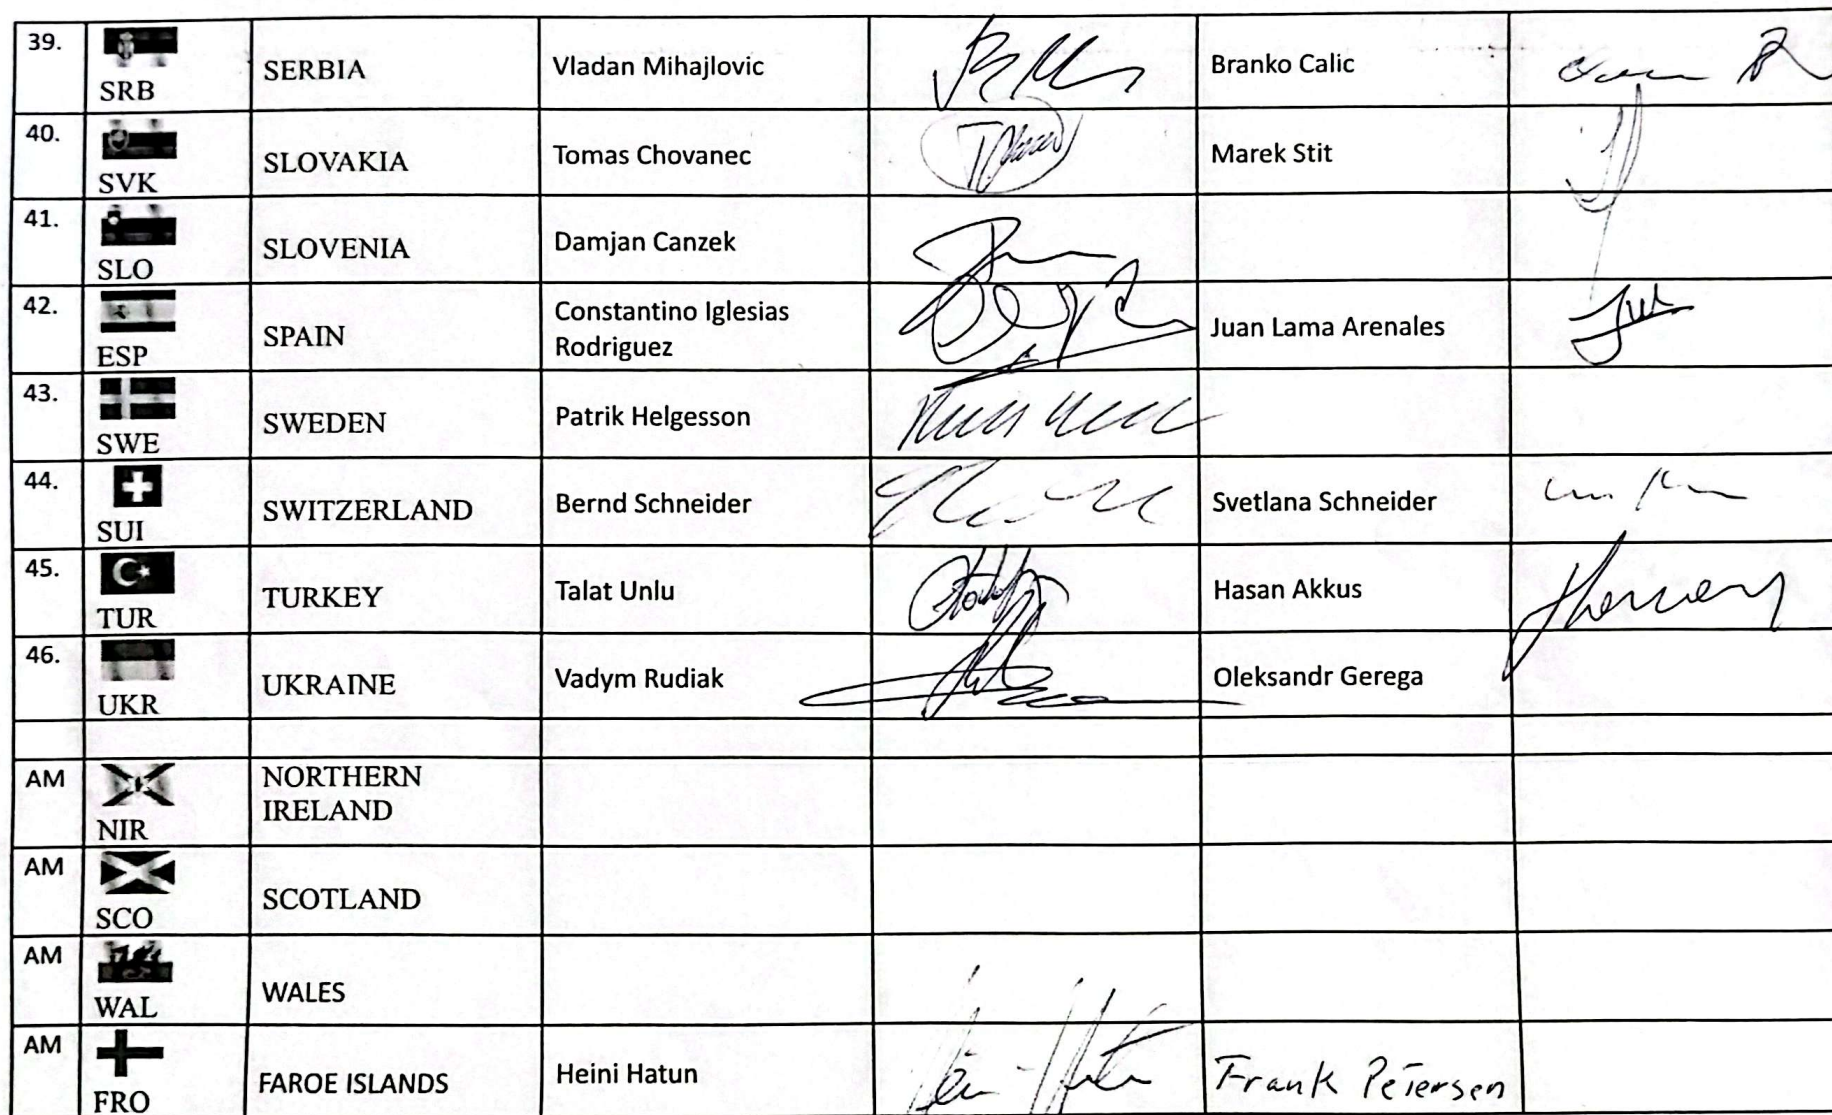 39. SRB SERBIA Vladan Mihajlovic Branko Calic
40. SVK SLOVAKIA Tomas Chovanec Marek Stit
41. SLO SLOVENIA Damjan Canzek
42. ESP SPAIN Constantino Iglesias
Rodriguez Juan Lama Arenales
43. SWE SWEDEN Patrik Helgesson
44. SUI SWITZERLAND Bernd Schneider Svetlana Schneider
45. TUR TURKEY Talat Unlu Hasan Akkus
46. UKR UKRAINE Vadym Rudiak Oleksandr Gerega
AM NIR NORTHERN
IRELAND
AM SCO SCOTLAND
AM WAL WALES
AM FRO FAROE ISLANDS Heini Hatun Frank Petersen